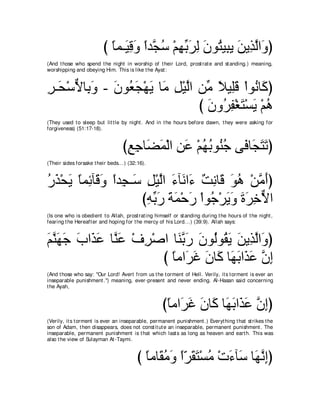 ( وَالَّذِينَ يَبِيتُونَ لِرَبِّهِمْ سُجَّداً وَقِيَـماً )
(And those who spend the night in worship of their Lord, prostrate and standing.) meaning,
worshipping and obeying Him. This is like the Ayat:
كَانُواْ قَلِيلاً مِّن اللَّيْلِ مَا يَهْجَعُونَ - وَبِالاٌّسْحَـرِ
هُمْ يَسْتَغْفِرُونَ )
(They used to sleep but little by night. And in the hours before dawn, they were asking for
forgiveness) (51:17-18),
(تَتَجَافَى جُنُوبُهُمْ عَنِ الْمَضَاجِعِ)
(Their sides forsake their beds...) (32:16).
(أَمَّنْ هُوَ قَانِتٌ ءَانَآءَ الَّيْلِ سَـجِداً وَقَآئِماً يَحْذَرُ
الاٌّخِرَةَ وَيَرْجُواْ رَحْمَةَ رَبِّهِ)
(Is one who is obedient to Allah, prostrating himself or standing during the hours of the night,
fearing the Hereafter and hoping for the mercy of his Lord...) (39:9). Allah says:
(وَالَّذِينَ يَقُولُونَ رَبَّنَا اصْرِفْ عَنَّا عَذَابَ جَهَنَّمَ
إِنَّ عَذَابَهَا كَانَ غَرَاماً )
(And those who say: "Our Lord! Avert from us the torment of Hell. Verily, its torment is ever an
inseparable punishment.") meaning, ever-present and never ending. Al-Hasan said concerning
the Ayah,
(إِنَّ عَذَابَهَا كَانَ غَرَاماً)
(Verily, its torment is ever an inseparable, permanent punishment.) Everything that strikes the
son of Adam, then disappears, does not constitute an inseparable, permanent punishment. The
inseparable, permanent punishment is that which lasts as long as heaven and earth. This was
also the view of Sulayman At-Taymi.
(إِنَّهَا سَآءَتْ مُسْتَقَرّاً وَمُقَاماً )